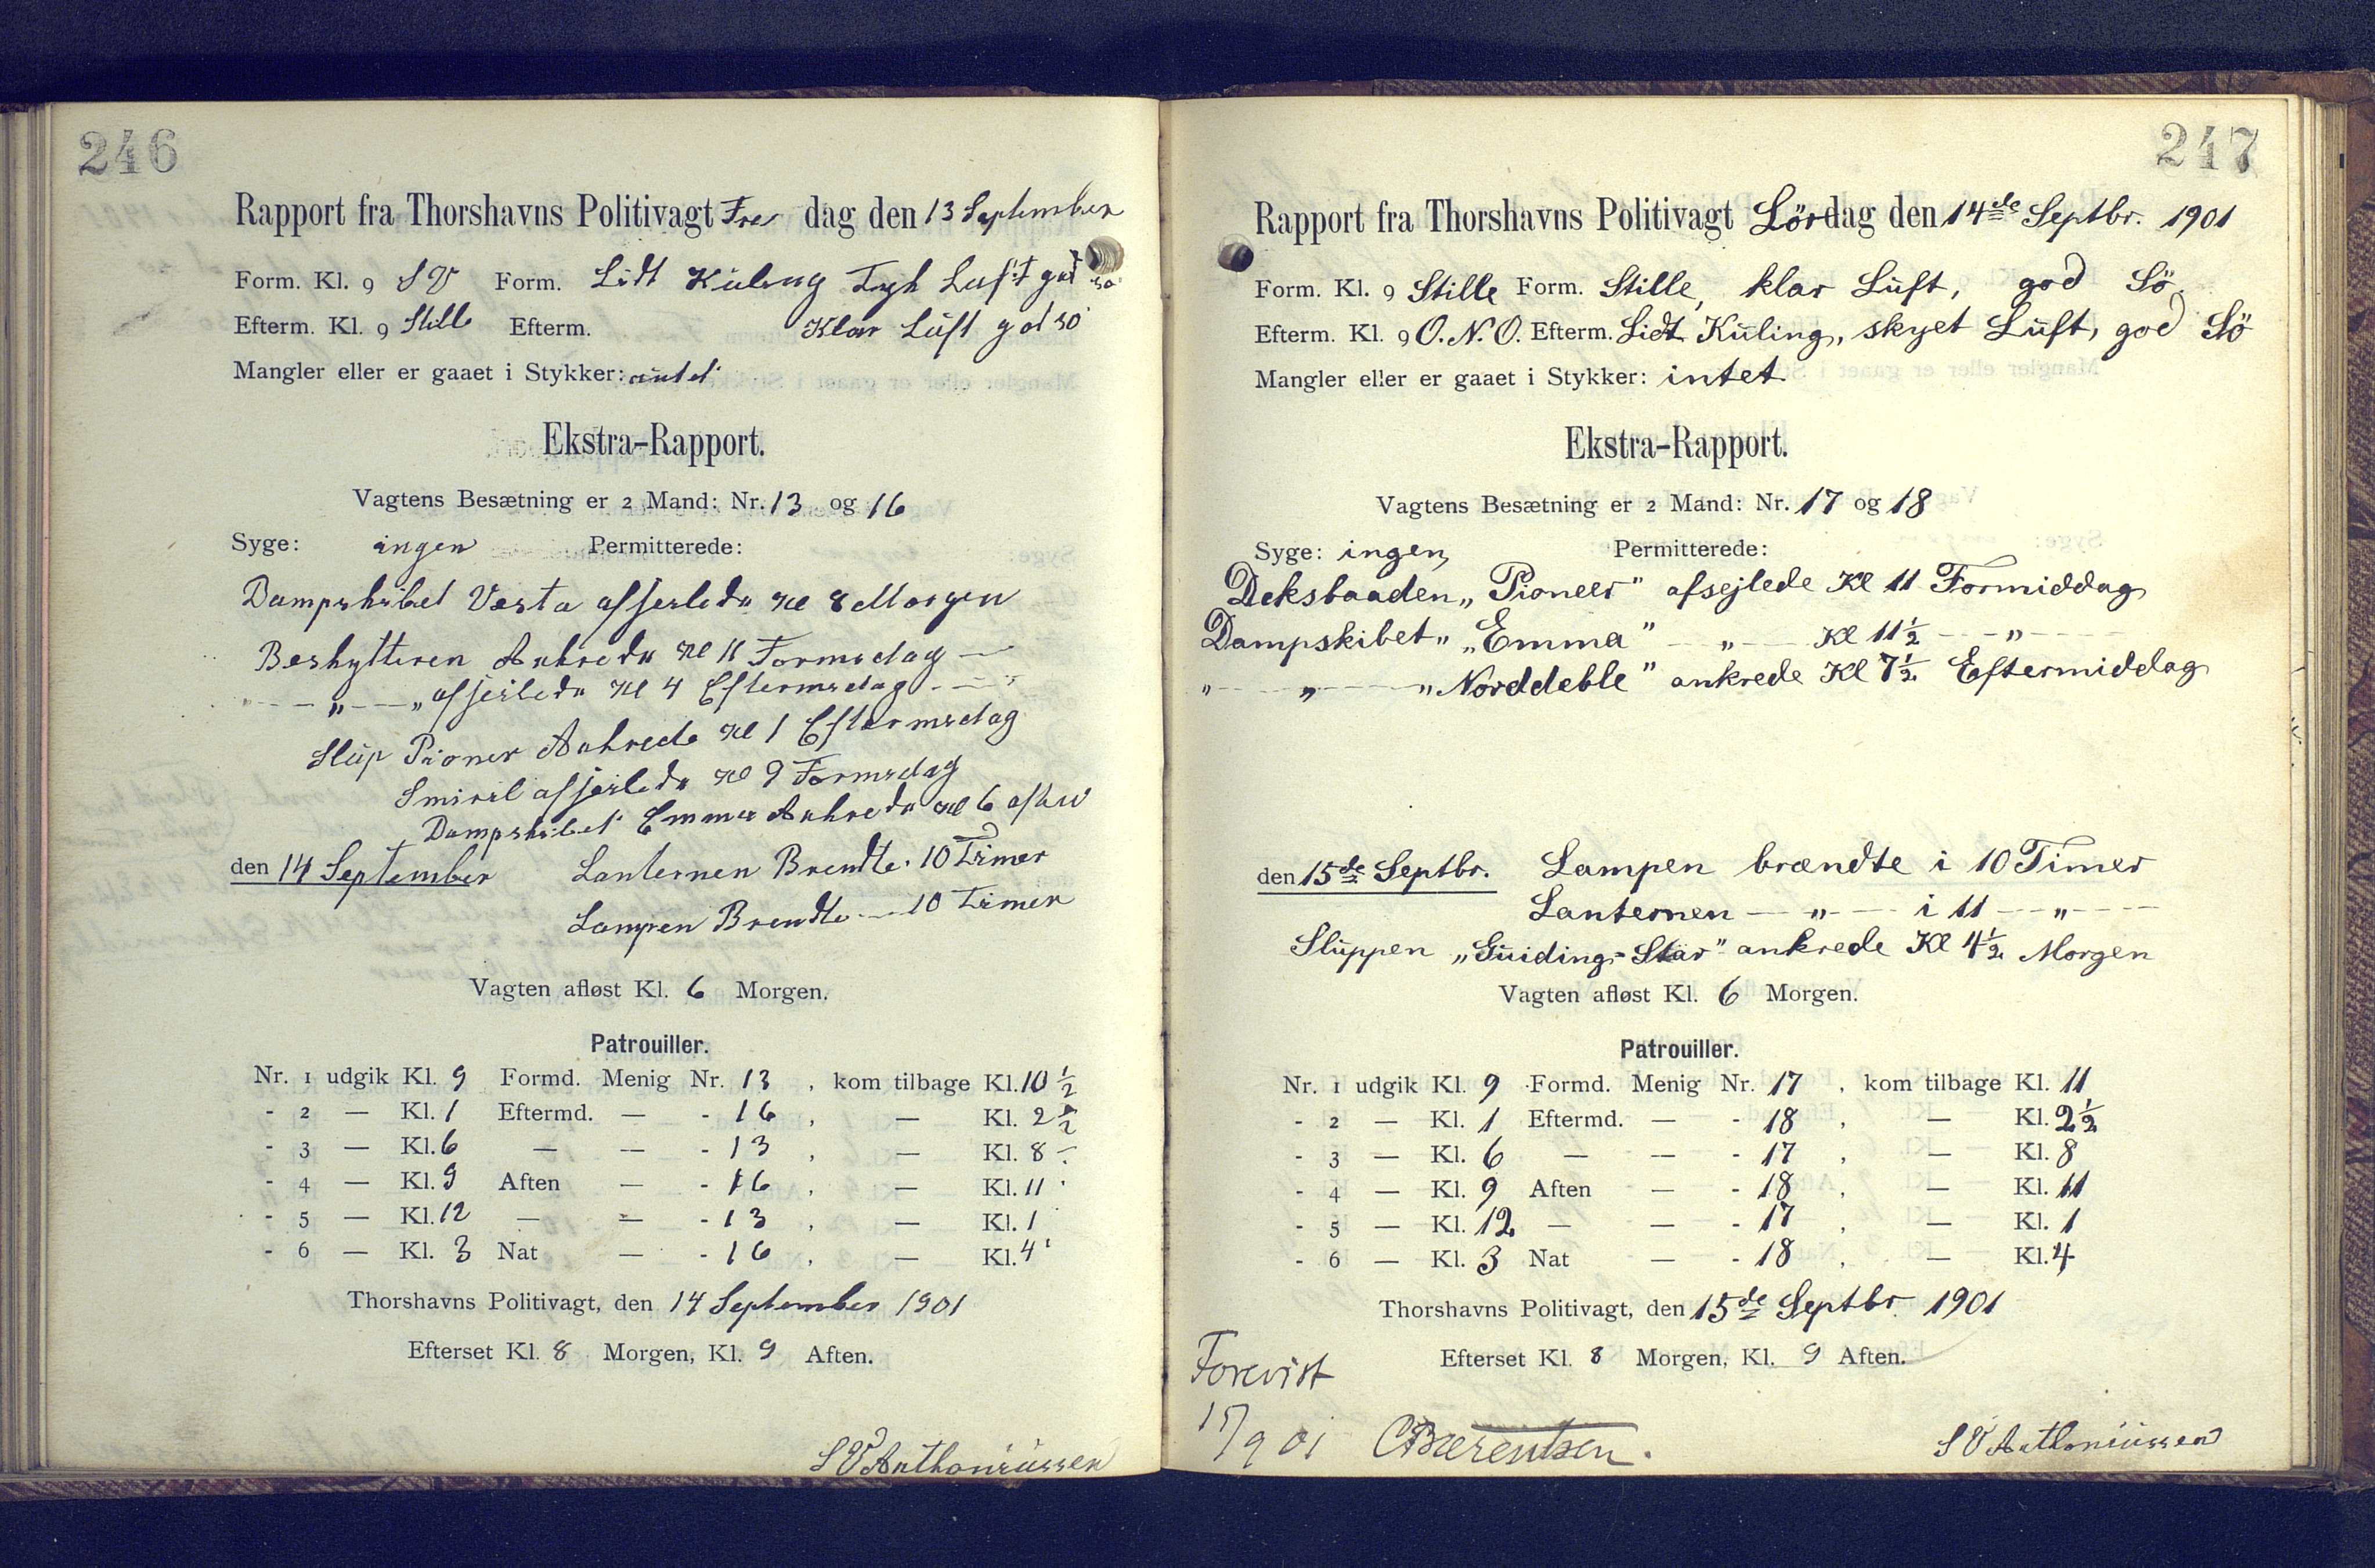 246
Rapport fra Thorshavns Politivagt Fre dag den 13 September
Form. Kl. 9 SV Form. Lidt Küling Tyk Luft god so
Efterm. Kl. 9 Stille Efterm. Klar Lüft god so
Mangler eller er gaaet i Stykker:
Ekstra-Rapport.
Vagtens Besætning er 2 Mand: Nr. 13 og 16
Syge: ingen Permitterede:
Dampskibet Vesta afsejlede Kl 8 Morgen
Beskytteren Ankrede Kl 11 Formedag —
— „ — „ afsejlede Kl 4 Eftermedag — „
Slup Pioner Ankrede Kl 1 Eftermedag
Smiril afsejlede Kl 9 Formedag
Dampskibet Emma Ankrede Kl 6 aften
den 14 September Lanternen Brendte 10 Timer
Lampen Brendte — 10 Timer
Vagten afløst Kl. 6 Morgen.
Patrouiller.
Nr. 1 udgik Kl. 9 Formd. Menig Nr. 13 , kom tilbage Kl. 10 ½
- 2 — Kl. 1 Eftermd. — - 16 , — Kl. 2 ½
- 3 — Kl. 6 — — - 13 , — Kl. 8
- 4 — Kl. 9 Aften — - 16 , — Kl. 11
- 5 — Kl. 12 — — - 13 , — Kl. 1
- 6 — Kl. 3 Nat — - 16 , — Kl. 4
Thorshavns Politivagt, den 14 September 1901
Efterset Kl. 8 Morgen, Kl. 9 Aften.
S V Anthoniussen
247
Rapport fra Thorshavns Politivagt Lördag den 14de Septbr. 1901
Form. Kl. 9 Stille Form. Stille, klar Lüft, god Sö.
Efterm. Kl. 9 O.N.O. Efterm. Lidt Küling, skyet Lüft, god Sö
Mangler eller er gaaet i Stykker: intet
Ekstra-Rapport.
Vagtens Besætning er 2 Mand: Nr. 17 og 18
Syge: ingen, Permitterede:
Deksbaaden „Pioneer" afsejlede Kl 11 Formiddag
Dampskibet „ „Emma" — „ — Kl 11½ — „ —
„ — „ — „Norddeble" ankrede Kl 7½ Eftermiddag
den 15de Septbr. Lampen brændte i 10 Timer
Lanternen — „ — i 11 — „ —
Slüppen „Guiding-Star" ankrede Kl 4½ Morgen
Vagten afløst Kl. 6 Morgen.
Patrouiller.
Nr. 1 udgik Kl. 9 Formd. Menig Nr. 17 , kom tilbage Kl. 11
- 2 — Kl. 1 Eftermd. — - 18 , — Kl. 2½
- 3 — Kl. 6 — — - 17 , — Kl. 8
- 4 — Kl. 9 Aften — - 18 , — Kl. 11
- 5 — Kl. 12 — — - 17 , — Kl. 1
- 6 — Kl. 3 Nat — - 18 , — Kl. 4
Thorshavns Politivagt, den 15de Septbr. 1901
Efterset Kl. 8 Morgen, Kl. 9 Aften.
Forevist
15/9 01 CBærentsen.
S V Anthoniussen